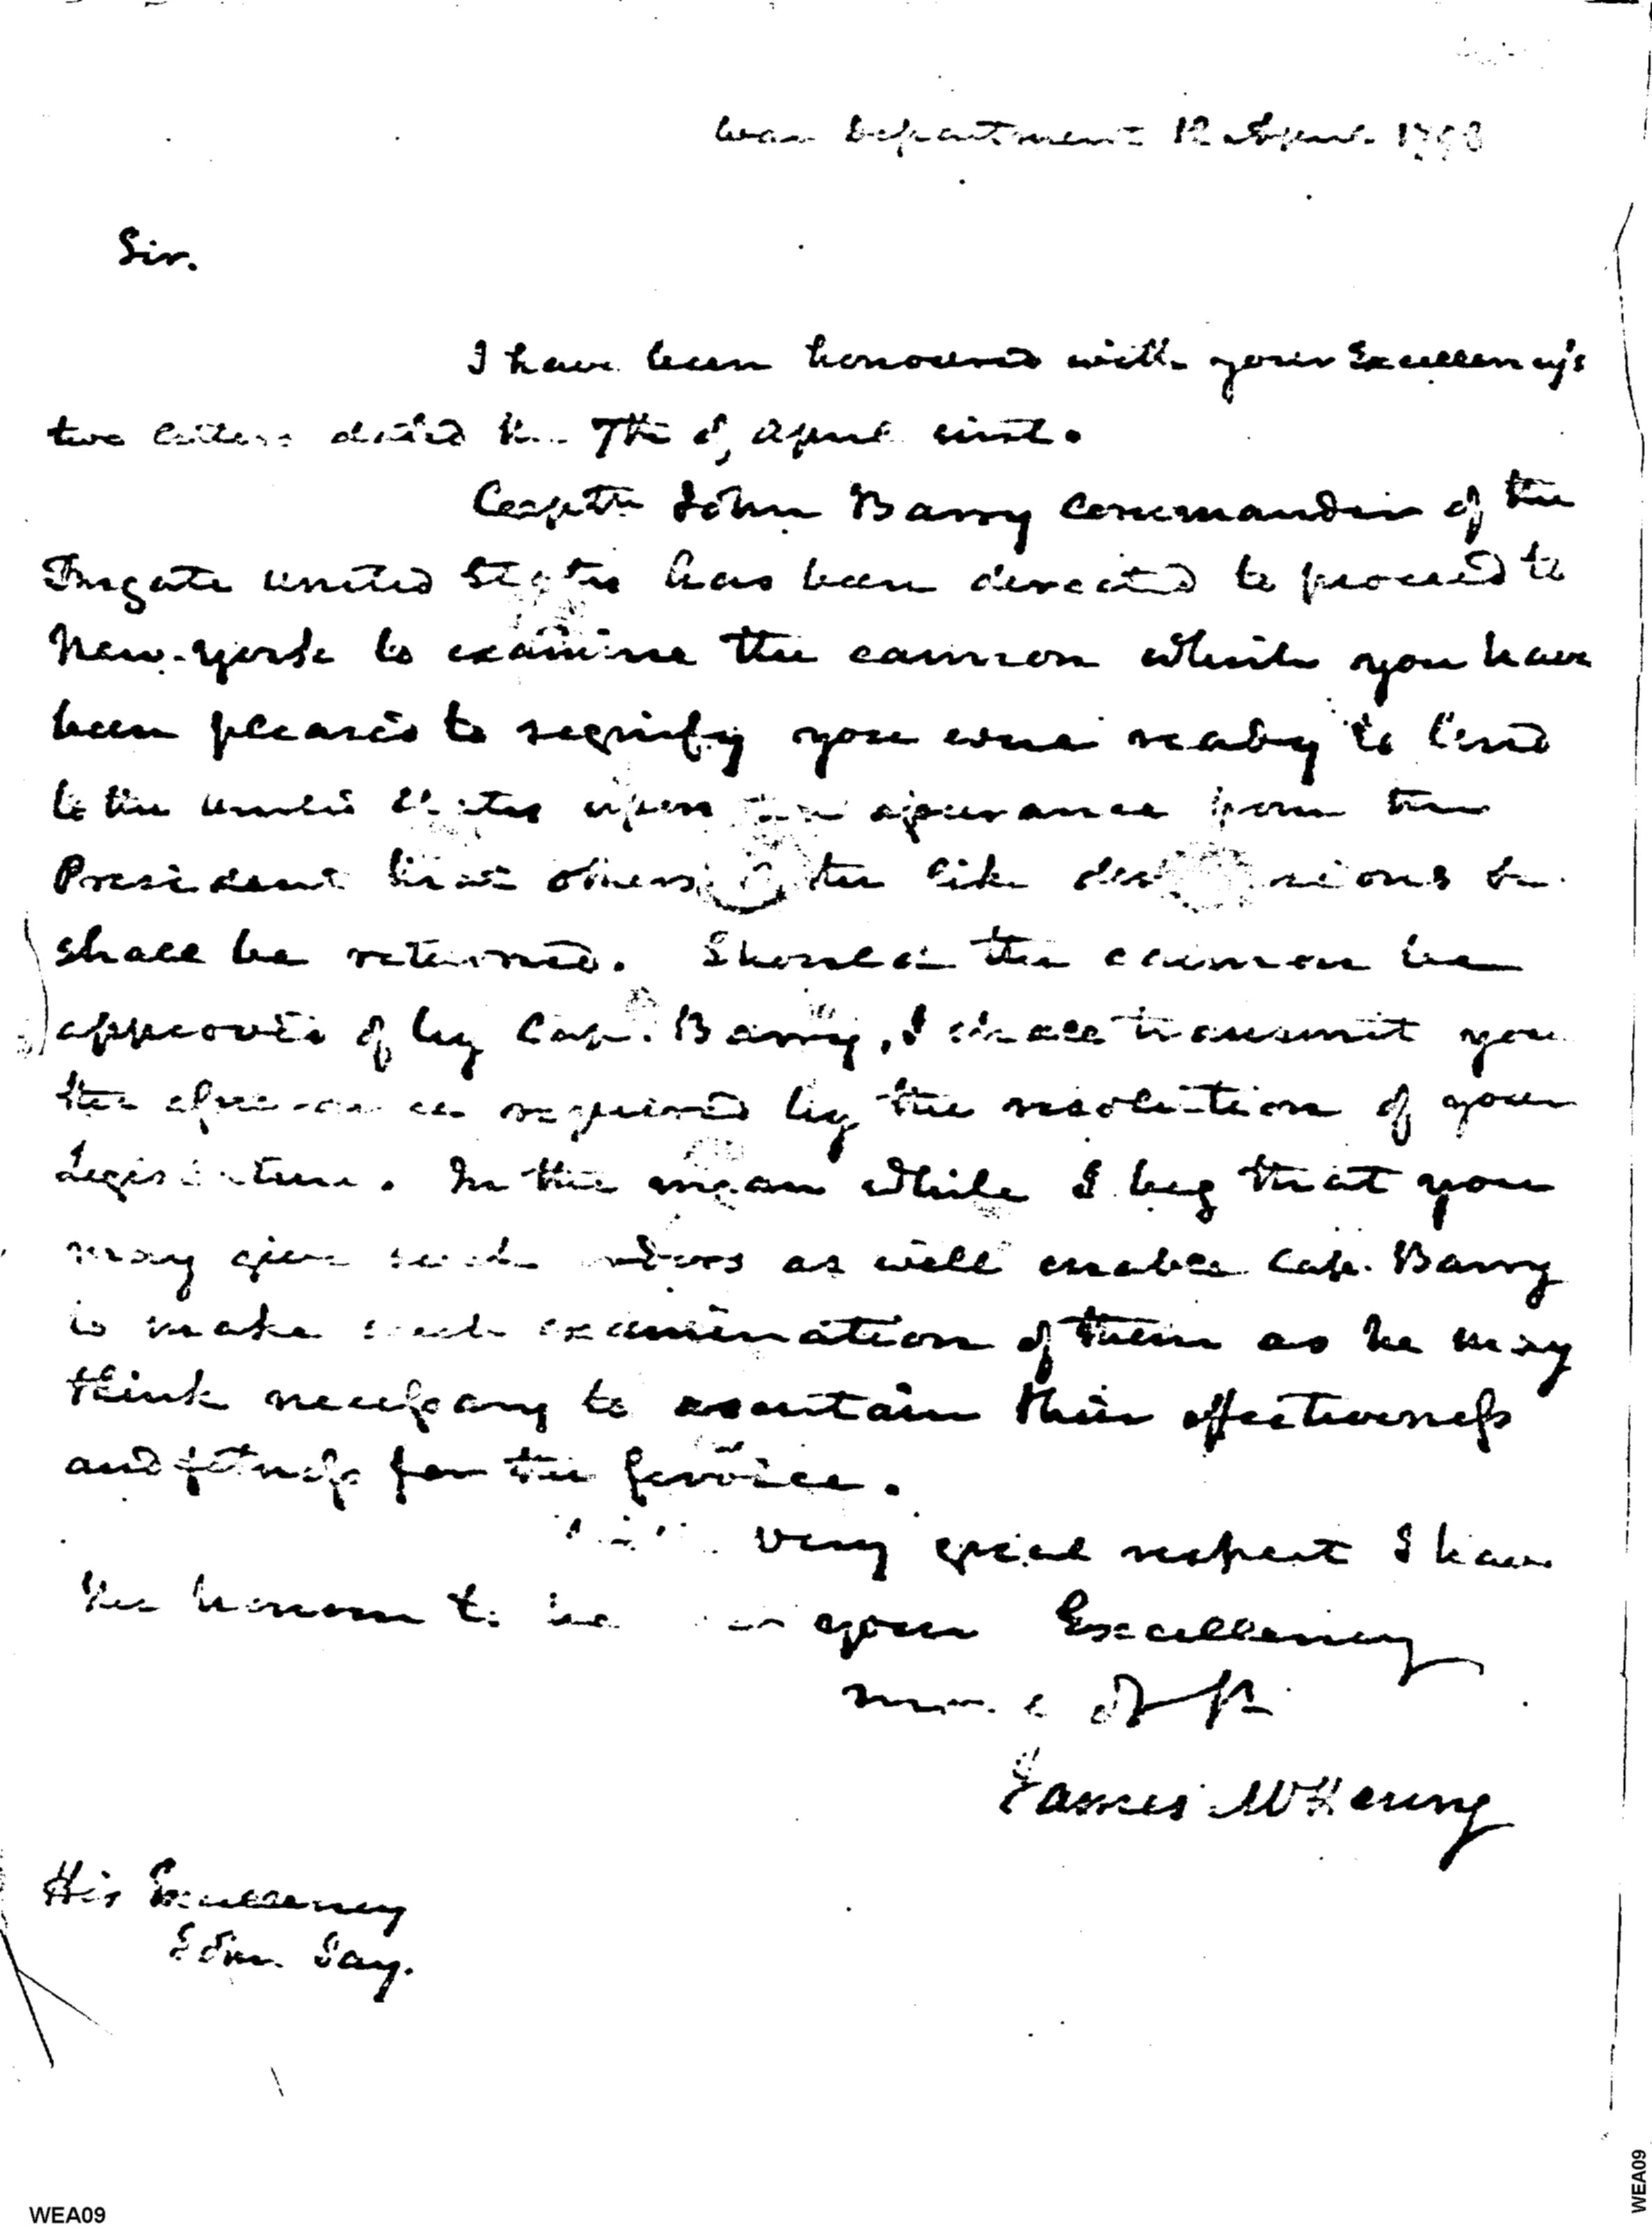 War Department 12 April 1798
Sir.
I have been honoured with your Excellency's
two letters dated the 7th of April inst.
Captn John Barry Commander of the
Frigate united States has been directed to proceed to
New-york to examine the cannon which you have
been pleased to signify you were ready to lend
to the united States upon an assurance from the
President that others of the like dimensions
shall be returned. Should the cannon be
approved of by Cap. Barry, I shall transmit you
the assurance required by the resolution of your
Legislature. In the mean while I beg that you
may give such orders as will enable Cap. Barry
to make such examination of them as he may
think necessary to ascertain their effectiveness
and fitness for the service.
With very great respect I have
the honour to be your Excellency
James McHenry
His Excellency
John Jay.
WEA09
WEA09